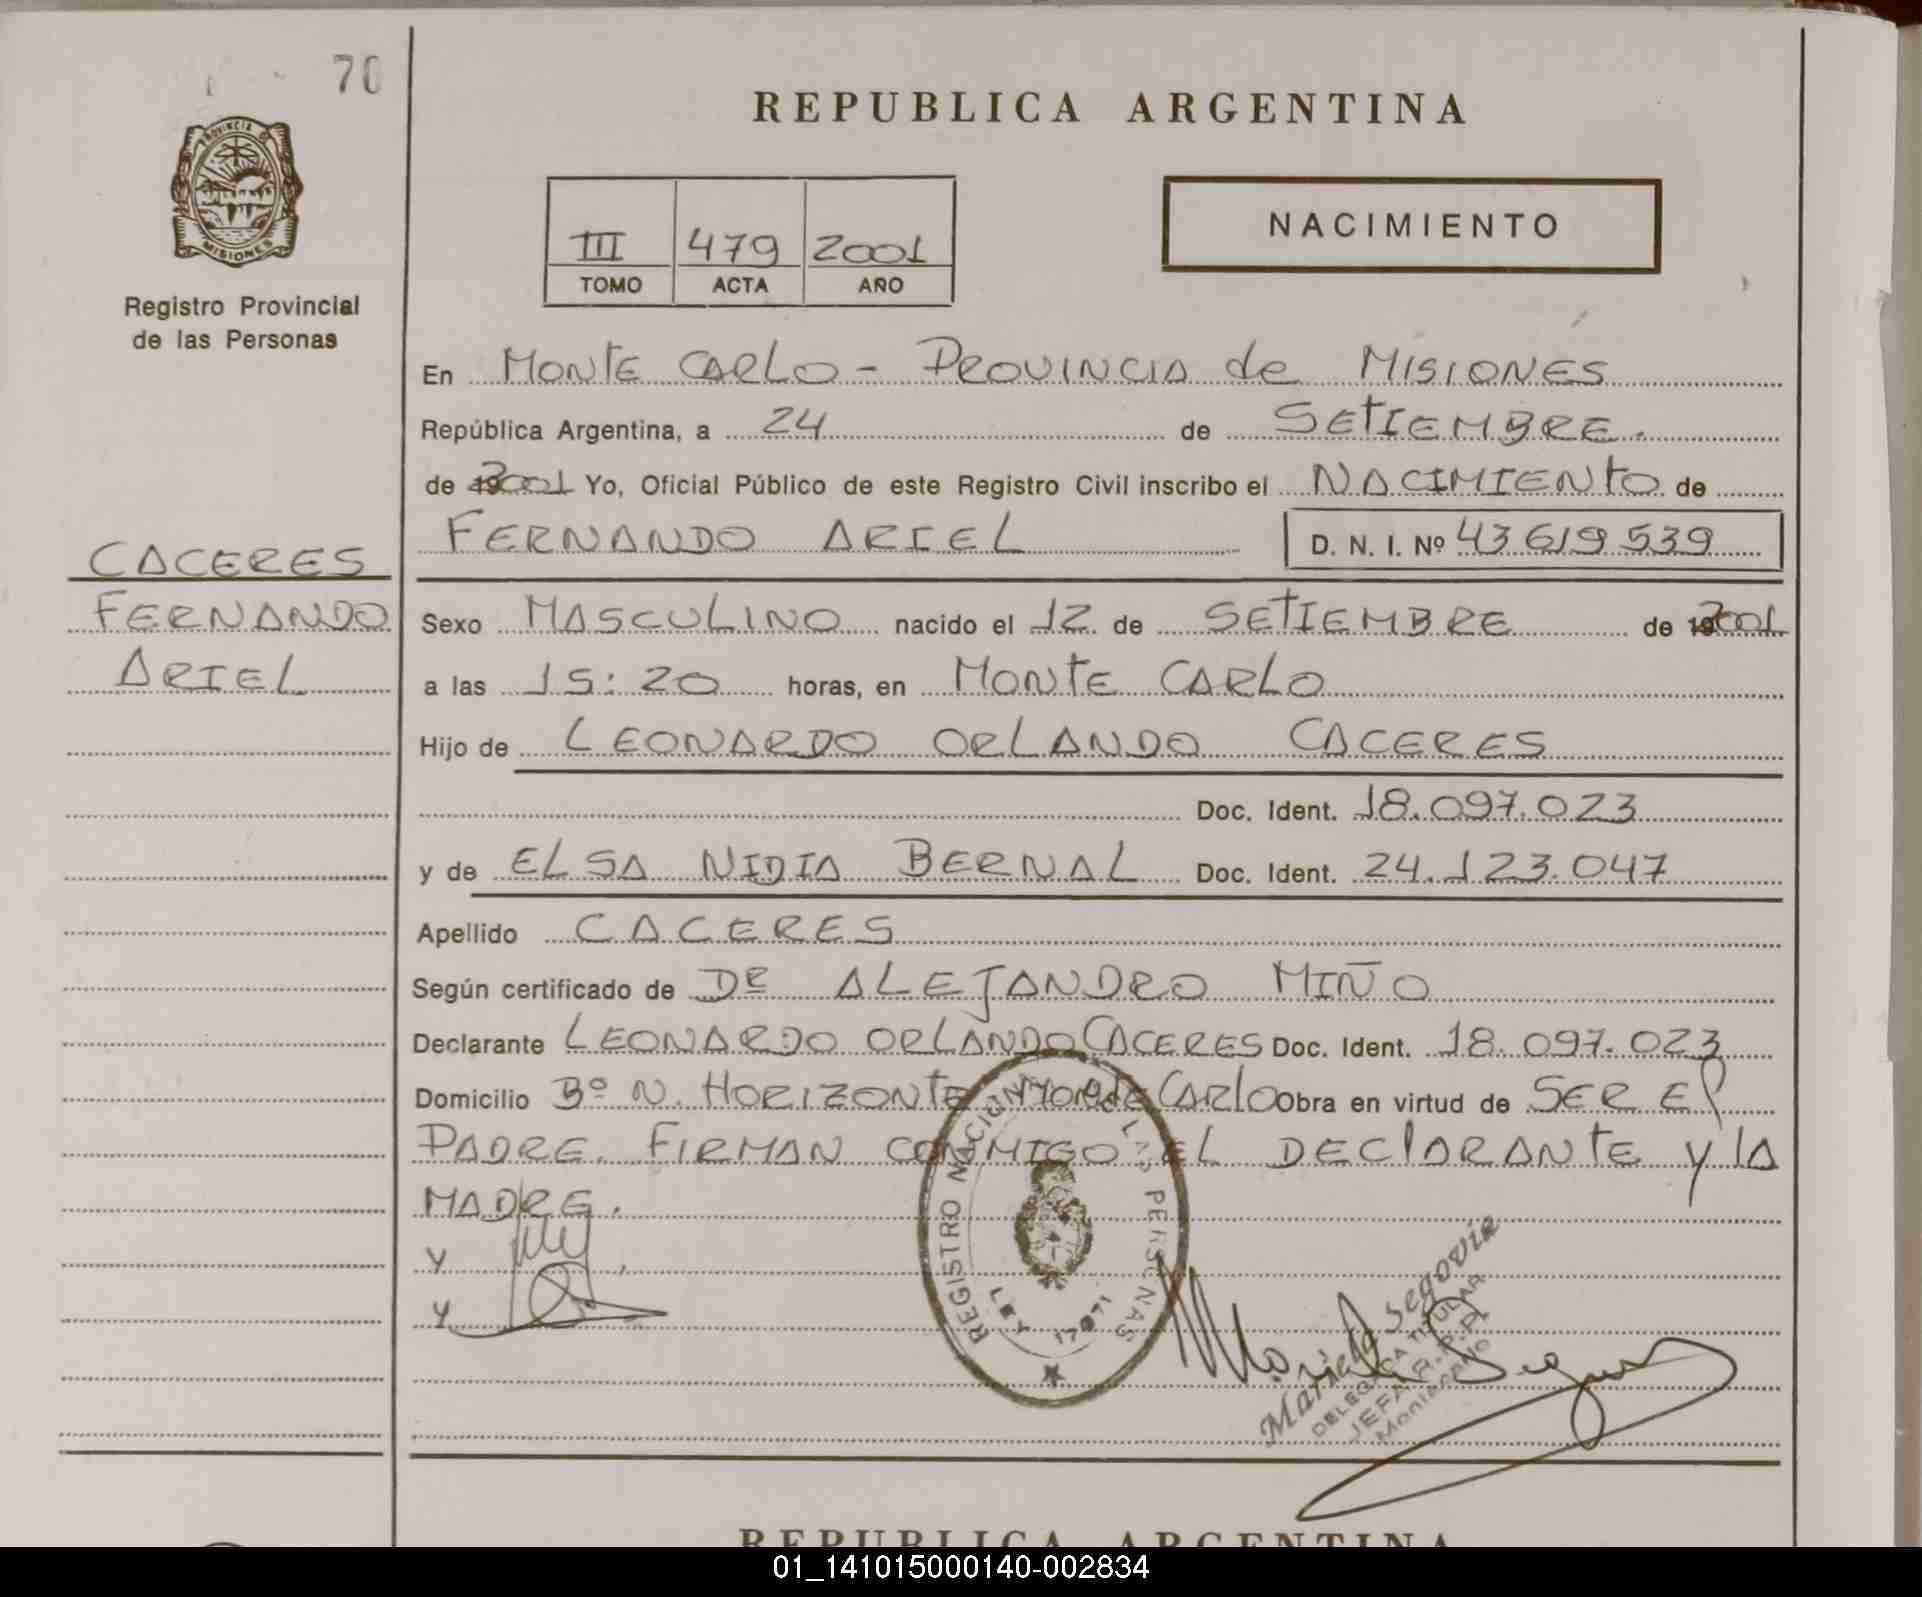 70
PROVINCIA DE
MISIONES
Registro Provincial
de las Personas
REPUBLICA ARGENTINA
NACIMIENTO
III 479 2001
TOMO ACTA AÑO
En MONTE CARLO - PROVINCIA de MISIONES
República Argentina, a 24 de SETIEMBRE.
de 2001 Yo, Oficial Público de este Registro Civil inscribo el NACIMIENTO de
FERNANDO ARIEL D. N. I. Nº 43 619 539
CACERES
FERNANDO
ARIEL
Sexo MASCULINO nacido el 12 de SETIEMBRE de 2001
a las 15:20 horas, en MONTE CARLO
Hijo de LEONARDO ORLANDO CACERES
Doc. Ident. 18.097.023
y de ELSA NIDIA BERNAL Doc. Ident. 24.123.047
Apellido CACERES
Según certificado de DR ALEJANDRO MIÑO
Declarante LEONARDO ORLANDO CACERES Doc. Ident. 18.097.023
Domicilio Bº N. HORIZONTE MONTE CARLO Obra en virtud de SER El
PADRE. FIRMAN CONMIGO EL DEClARANTE y lA
MADRE.
y
y
REGISTRO NACIONAL DE LAS PERSONAS
LEY 17671
Mariela Segovia
DELEGADA TITULAR
JEFA R.P.P.
Montecarlo
REPUBLICA ARGENTINA
01_141015000140-002834